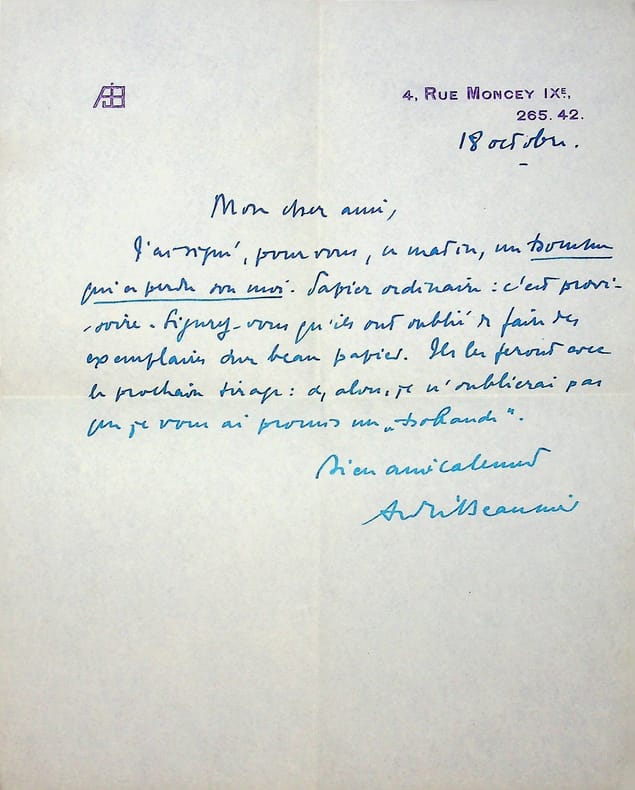 AB
4, RUE MONCEY IXE,
265.42.
18 octobre.
Mon cher ami,
J'ai signé, pour vous, ce matin, un Homme
qui a perdu son moi. Papier ordinaire : c'est provi-
-soire. Figurez-vous qu'ils ont oublié de faire des
exemplaires sur beau papier. Ils les feront avec
le prochain tirage : et, alors, je n'oublierai pas
que je vous ai promis un „Hollande".
Bien amicalement
André Beaunier